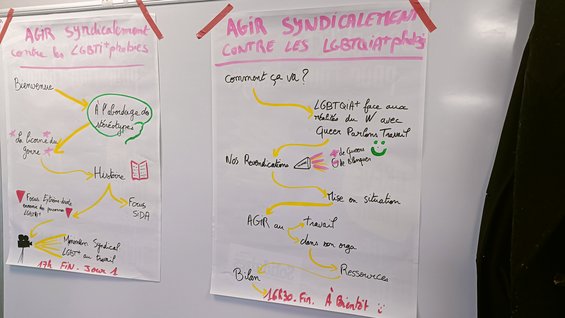 AGIR SYNDICALEMENT
contre les LGBTI+phobies
Bienvenue
À l'abordage des
stéréotypes
La licorne du
genre
Histoire
Focus Extrême droite
ennemie des personnes
LGBTI+
Focus
SIDA
Mémoires Syndical
LGBT+ au travail
17h FIN. Jour 1
AGIR SYNDICALEMENT
CONTRE LES LGBTQIA+phobies
Comment ça va ?
LGBTQIA+ face aux
réalités du W avec
Queer Parlons Travail
Nos Revendications
+ de Queers
Mise en situation
AGIR au
travail
dans son orga
Ressources
Bilan
16h30. Fin. À Bientôt